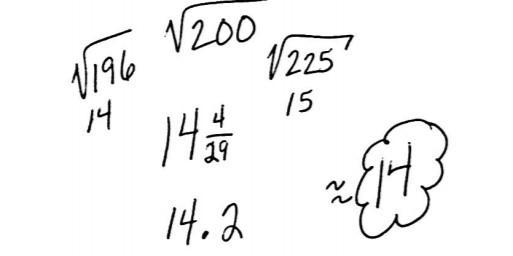 √196 √200 √225
14 15
14 4/29
14.2 ≈ 14